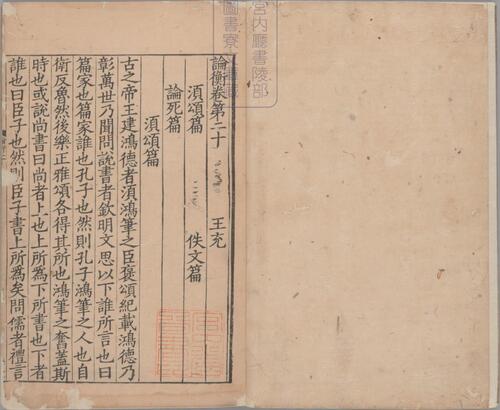 論衡卷第二十 王充
湏頌篇 佚文篇
論死篇
湏頌篇
古之帝王建鴻德者湏鴻筆之臣褒頌紀載鴻德乃
彰萬世乃聞問說書者欽明文思以下誰所言也曰
篇家也篇家誰也孔子也然則孔子鴻筆之人也自
衛反魯然後樂正雅頌各得其所也鴻筆之奮蓋斯
時也或說尚書曰尚者上也上所為下所書也下者
誰也曰臣子也然則臣子書上所為矣問儒者禮言
宮内廳書陵部